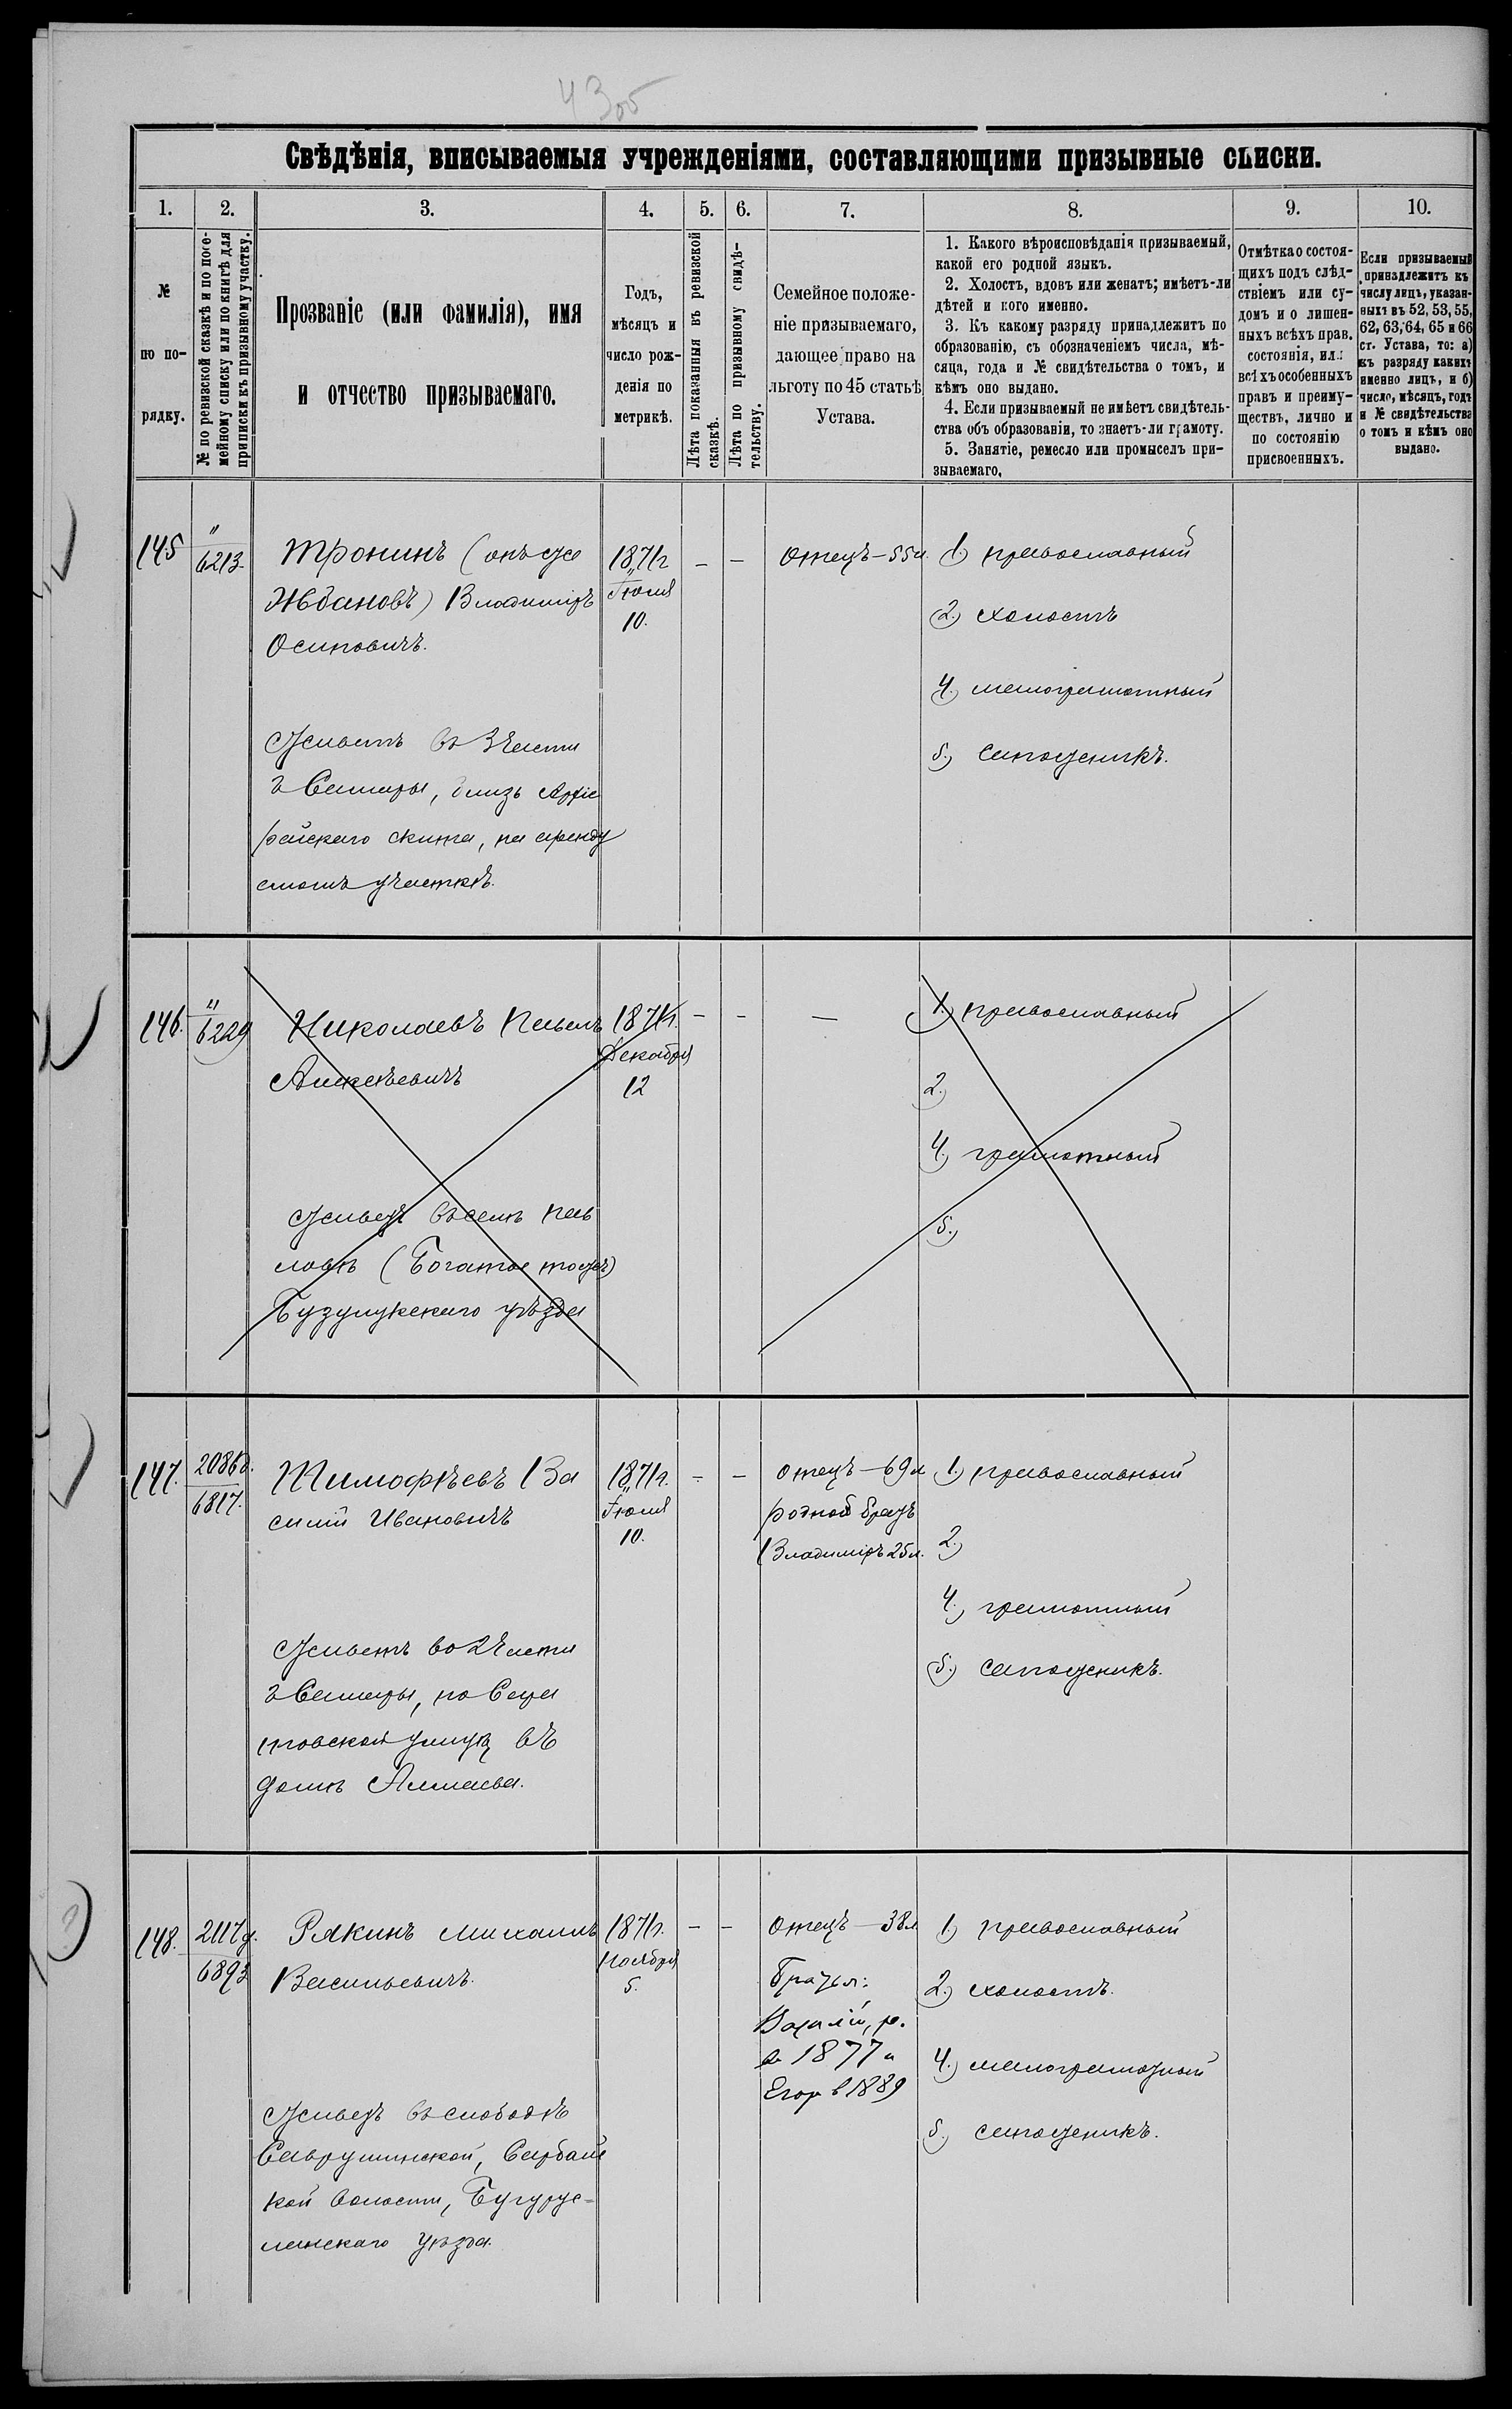 43об
Свѣдѣнія, вписываемыя учрежденіями, составляющими призывные списки.
1.
2.
3.
4.
5.
6.
7.
8.
9.
10.
№
по по-
рядку.
№ по ревизской сказкѣ и по посе-
мейному списку или по книгѣ для
приписки къ призывному участку.
Прозваніе (или фамилія), имя
и отчество призываемаго.
Годъ,
мѣсяцъ и
число рож-
денія по
метрикѣ.
Лѣта показанныя въ ревизской
сказкѣ.
Лѣта по призывному свидѣ-
тельству.
Семейное положе-
ніе призываемаго,
дающее право на
льготу по 45 статьѣ
Устава.
1. Какого вѣроисповѣданія призываемый,
какой его родной языкъ.
2. Холостъ, вдовъ или женатъ; имѣетъ-ли
дѣтей и кого именно.
3. Къ какому разряду принадлежитъ по
образованію, съ обозначеніемъ числа, мѣ-
сяца, года и № свидѣтельства о томъ, и
кѣмъ оно выдано.
4. Если призываемый не имѣетъ свидѣтель-
ства объ образованіи, то знаетъ-ли грамоту.
5. Занятіе, ремесло или промыселъ при-
зываемаго.
Отмѣтка о состоя-
щихъ подъ слѣд-
ствіемъ или су-
домъ и о лишен-
ныхъ всѣхъ прав.
состоянія, или
всѣхъ особенныхъ
правъ и преиму-
ществъ, лично и
по состоянію
присвоенныхъ.
Если призываемый
принадлежитъ къ
числу лицъ, указан-
ныхъ въ 52, 53, 55,
62, 63, 64, 65 и 66
ст. Устава, то: а)
къ разряду какихъ
именно лицъ, и б)
число, мѣсяцъ, годъ
и № свидѣтельства
о томъ и кѣмъ оно
выдано.
145
"
6213.
Тронинъ (онъ же
Ждановъ) Владиміръ
Осиповичъ.
Живетъ въ 3 части
г Самары, близъ Архіе
рейскаго скита, на аренду
емомъ участкѣ.
1871 г
Іюля
10.
–
–
Отецъ – 55 л.
1.) православный
2.) холостъ
4.) малограмотный
5.) сапожникъ.
146.
"
6229
Николаевъ Павелъ
Алексѣевичъ
Живетъ въ селѣ Пав
ловкѣ (Богатое тожъ)
Бузулукскаго уѣзда
1871 г.
Декабря
12
–
–
–
1.) православный
2.)
4.) грамотный
5.)
147.
2086 д.
6817.
Тимофѣевъ Ва
силій Ивановичъ
Живетъ во 2 части
г Самары, по Сара
товской улицѣ въ
домѣ Алмаева.
1871 г.
Іюля
10.
–
–
отецъ – 69 л
родной братъ
Владиміръ 25 л.
1.) православный
2.)
4.) грамотный
5.) сапожникъ.
148.
2117 д.
6893
Рякинъ Михаилъ
Васильевичъ.
Живетъ въ слободкѣ
Саврушинской, Сарбай
кой волости, Бугурус-
ланскаго уѣзда.
1871 г.
Ноября
5.
–
–
Отецъ – 38 л
Братья:
Василій, р.
в 1877 и
Егор в 1889
1.) православный
2.) холостъ.
4.) малограмотный
5.) сапожникъ.